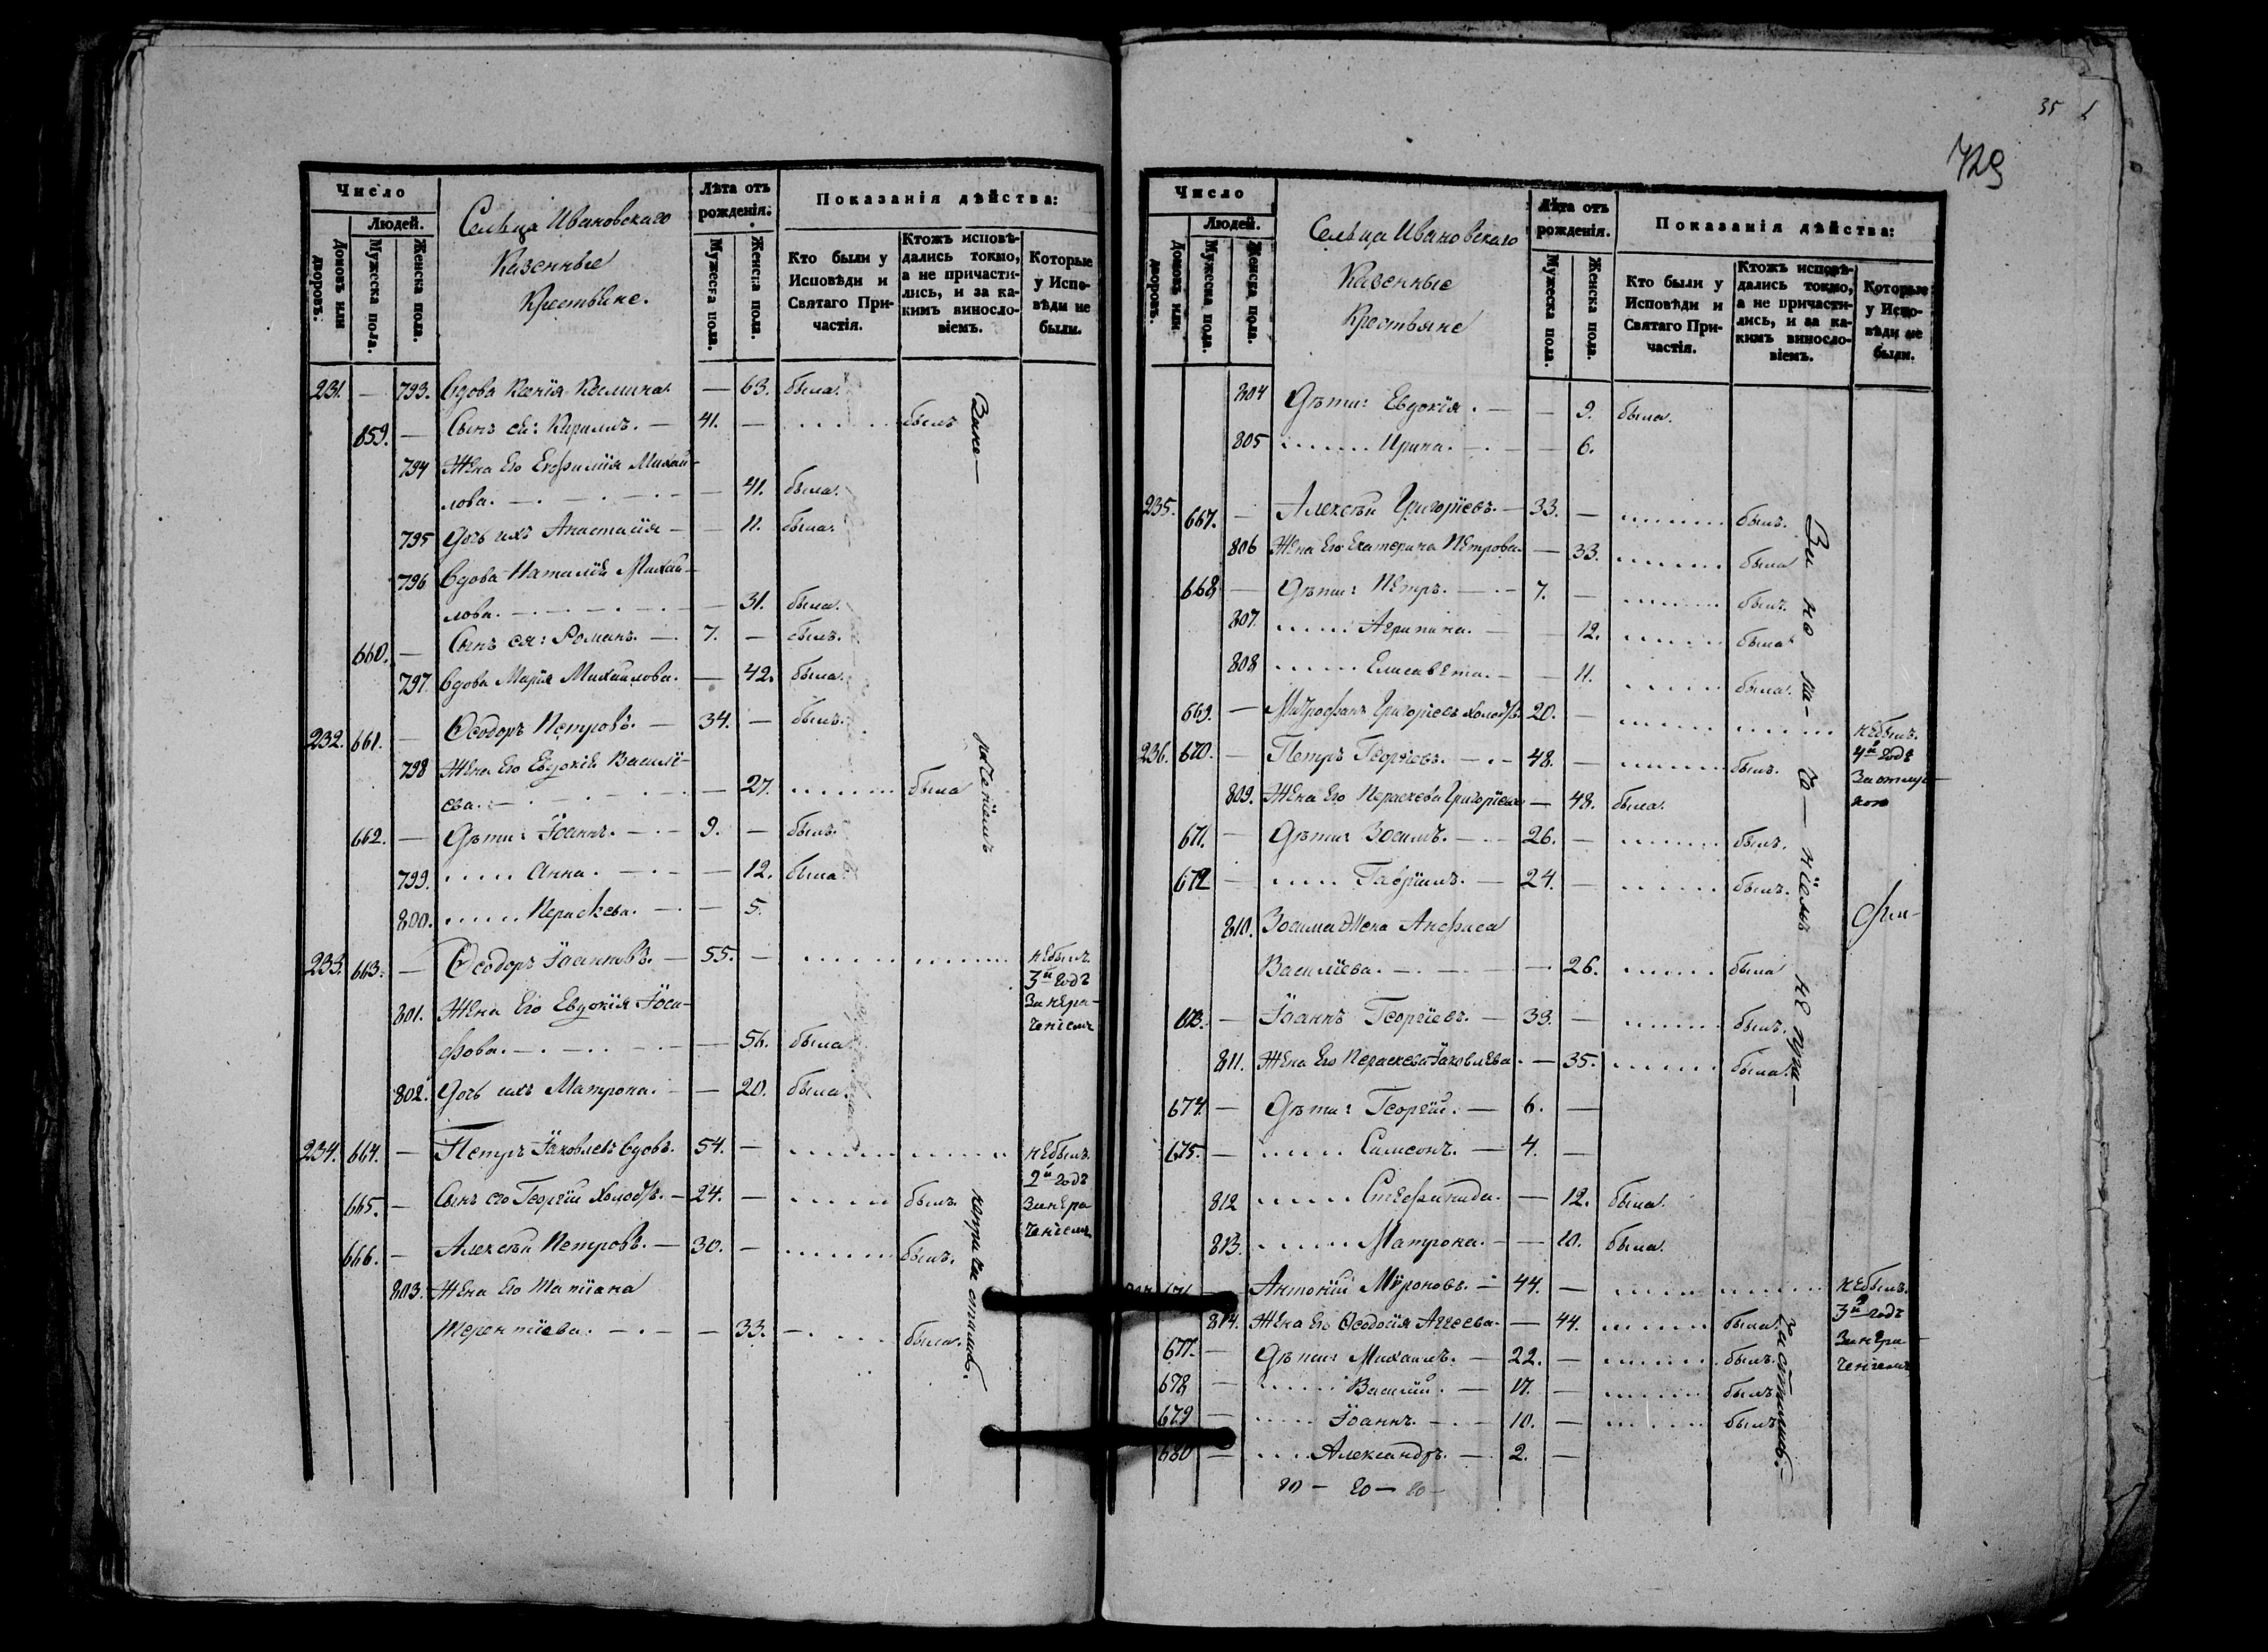 35
729
Число
Людей.
Домовъ или дворовъ.
Мужеска пола.
Женска пола.
Сельца Ивановскаго
Казенные
Крестьяне.
Лѣта отъ рожденія.
Мужеска пола.
Женска пола.
Показанія дѣйства:
Кто были у Исповѣди и Святаго Причастія.
Ктожъ исповѣдались токмо, а не причастились, и за какимъ винословіемъ.
Которые у Исповѣди не были.
231. — 793. Вдова Ксенія — 63. была.
659. — Сынъ ея: Кириллъ. — 41. — былъ
794 Жена Его Евфимія Михай-
лова. — 41. была.
795 Дочь ихъ Анастасія — — 11. была.
796 Вдова Наталія Михай-
лова. — 31. была.
660. — Сынъ ея: Романъ. — 7. — былъ.
797 Вдова Марія Михайлова. — 42. была.
232. 661. — Ѳеодоръ Петровъ. — 34. — былъ.
798 Жена Его Евдокія Василі-
ева. — 27. была
662. — Дѣти: Іоаннъ. — 9. — былъ.
799. Анна. — 12. была.
800. Параскева. — 5.
233. 663. — Ѳеодоръ Іоанновъ. — 55. — небылъ
3й годъ
За нера-
ченіемъ
801. Жена Его Евдокія Іоси-
фова. — 56. была
802. Дочь ихъ Матрона. — 20. была.
234. 664. — Петръ Іаковлевъ Вдовъ. 54. — небылъ.
2й годъ
За нера
ченіемъ
665. — Сынъ его Георгій Холостъ. — 24. — былъ.
666. — Алексѣй Петровъ. — 30. — былъ.
803. Жена Его Татіана
Терентіева. — 33. — была.
За не-
раченіемъ
непричастились.
Число
Людей.
Домовъ или дворовъ.
Мужеска пола.
Женска пола.
Сельца Ивановскаго
Казенные
Крестьяне
Лѣта отъ рожденія.
Мужеска пола.
Женска пола.
Показанія дѣйства:
Кто были у Исповѣди и Святаго Причастія.
Ктожъ исповѣдались токмо, а не причастились, и за какимъ винословіемъ.
Которые у Исповѣди не были.
804 Дѣти: Евдокія. — — 9. была.
805 Ирина. — — 6.
235. 667. — Алексѣй Григоріевъ. — 33. — былъ.
806 Жена Его Екатерина Петрова. — 33. была
668 — Дѣти: Петръ. — 7. — былъ.
807. Агрипина. — 12. была
808 Елисавета. — — 11. была.
669. — Митрофанъ Григоріевъ Холостъ. 20. — небылъ.
4й годъ
За отлуч-
кою
236. 670. — Петръ Георгіевъ. — 48. — былъ.
809. Жена Его Параскева Григоріева — 48. была.
671. — Дѣти: Зосимъ. — 26. — былъ.
672 — Гавріилъ. — 24. — былъ.
810. Зосима Жена Анфиса
Василіева. — 26. была
673. — Іоаннъ Георгіевъ. — 39. — былъ.
811. Жена Его Параскева Іаковлева. — 35. была.
674. — Дѣти: Георгій. — 6. —
675. — Сампсонъ. — 4. —
812 Стефанида. — 12. была.
813. Матрона. — — 10. была.
— Антоній Мѵроновъ. — 44. — небылъ.
3й годъ
За нера
ченіемъ
814. Жена Его Ѳеодосія Агеева. — 44. была.
677. — Дѣти: Михаилъ. — 22. — былъ.
678 — Василій. — 17. — былъ
679 — Іоаннъ. — 10. — былъ
680 — Александръ. — 2. —
20 — 20 — 20 —
За не ра-
че-ніемъ не при-
частились.